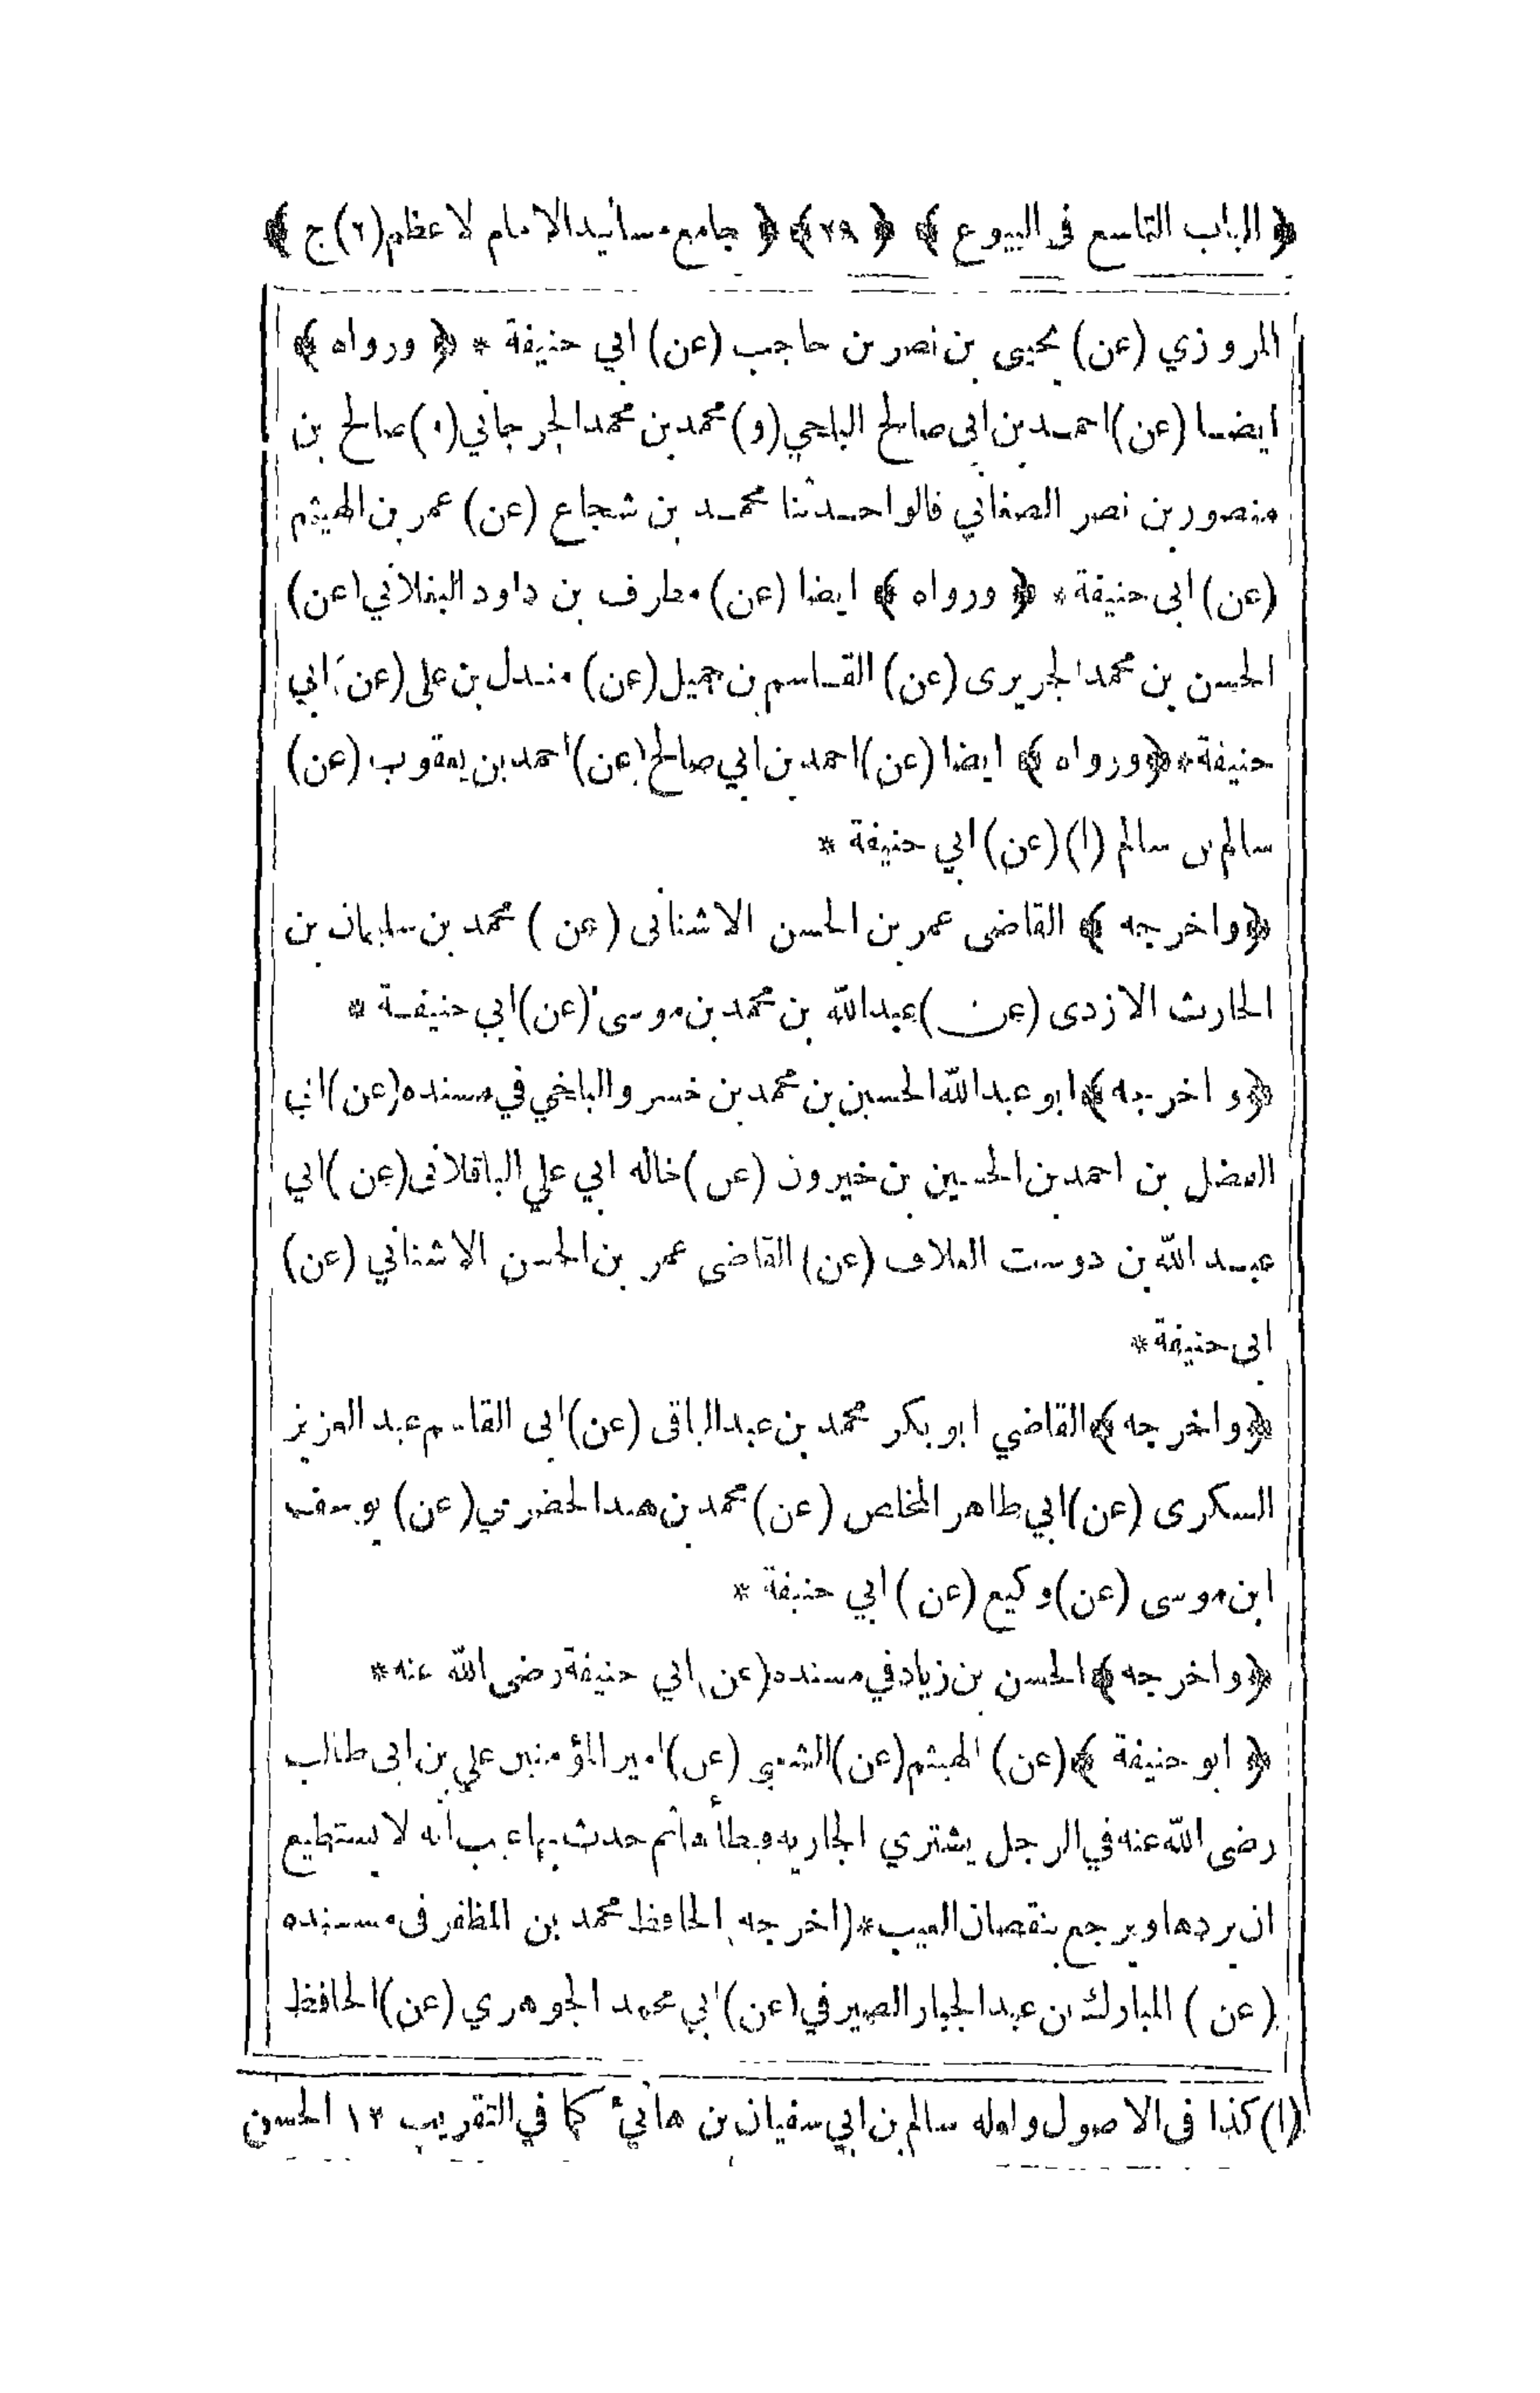 ﴿ الباب التاسع في البيوع ﴾ ﴿ ٢٩ ﴾ ﴿ جامع مسانيد الامام لاعظم (٢) ج ﴾
المروزي (عن) يحيى بن نصر بن حاجب (عن) ابي حنيفة * ﴿ ورواه ﴾
ايضا (عن) احمد بن ابي صالح البلخي (و) محمد بن محمد الجرجاني (و) صالح بن
منصور بن نصر الصغاني قالوا حدثنا محمد بن شجاع (عن) عمر بن الهيثم
(عن) ابى حنيفة * ﴿ ورواه ﴾ ايضا (عن) مطرف بن داود البغلاني (عن)
الحسن بن محمد الجريرى (عن) القاسم بن جميل (عن) مندل بن على (عن) ابي
حنيفة * ﴿ ورواه ﴾ ايضا (عن) احمد بن ابي صالح (عن) احمد بن يعقوب (عن)
سالم بن سالم (١) (عن) ابي حنيفة *
﴿ واخرجه ﴾ القاضى عمر بن الحسن الاشنانى (عن) محمد بن سليمان بن
الحارث الازدى (عن) عبدالله بن محمد بن موسى (عن) ابي حنيفة *
﴿ واخرجه ﴾ ابو عبدالله الحسين بن محمد بن خسرو البلخي في مسنده (عن) ابي
الفضل بن احمد بن الحسين بن خيرون (عن) خاله ابي علي الباقلانى (عن) ابي
عبد الله بن دوست العلاف (عن) القاضى عمر بن الحسن الاشناني (عن)
ابى حنيفة *
﴿ واخرجه ﴾ القاضي ابو بكر محمد بن عبدالباقى (عن) ابى القاسم عبد العزيز
السكرى (عن) ابي طاهر المخلص (عن) محمد بن هـد الحضرمي (عن) يوسف
ابن موسى (عن) وكيع (عن) ابي حنيفة *
﴿ واخرجه ﴾ الحسن بن زياد في مسنده (عن) ابي حنيفة رضى الله عنه *
﴿ ابو حنيفة ﴾ (عن) الهيثم (عن) الشعبي (عن) امير المؤمنين علي بن ابى طالب
رضى الله عنه في الرجل يشتري الجارية ويطأها ثم حدث بها عيب أنه لا يستطيع
ان يردها ويرجع بنقصان العيب * (اخرجه) الحافظ محمد بن المظفر فى مسنده
(عن) المبارك بن عبدالجبار الصيرفي (عن) ابي محمد الجوهري (عن) الحافظ
(١) كذا فى الاصول ولعله سالم بن ابي سفيان بن هانئ كما في التقريب ١٢ الحسن